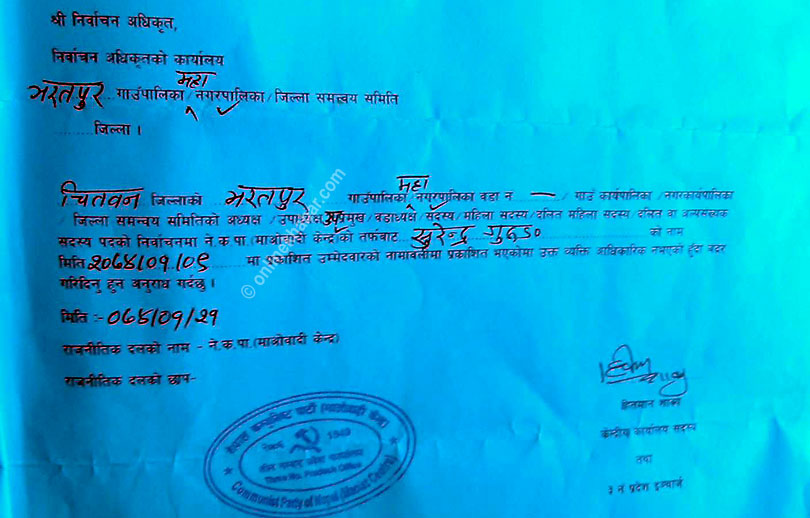 श्री निर्वाचन अधिकृत,
निर्वाचन अधिकृतको कार्यालय
महा
भरतपुर गाउँपालिका/नगरपालिका/जिल्ला समन्वय समिति
.........जिल्ला ।
महा
चितवन जिल्लाको भरतपुर गाउँपालिका/नगरपालिका वडा नं — / गाउँ कार्यपालिका /नगरकार्यपालिका
/ जिल्ला समन्वय समितिको अध्यक्ष /उपाध्यक्ष उपप्रमुख / वडाध्यक्ष / सदस्य/महिला सदस्य/दलित महिला सदस्य/दलित वा अल्पसंख्यक
सदस्य पदको निर्वाचनमा ने.क.पा.(माओवादी केन्द्र)को तर्फबाट सुरेन्द्र को नाम
मिति २०७४/०१/०९ मा प्रकाशित उम्मेदवारको नामावलीमा प्रकाशित भएकोमा उक्त व्यक्ति आधिकारिक नभएको हुँदा बदर
गरिदिनु हुन अनुरोध गर्दछु ।
मिति :- ०७४/०१/२१
राजनीतिक दलको नाम - ने.क.पा.(माओवादी केन्द्र)
राजनीतिक दलको छाप-
हितमान शाक्य
केन्द्रीय कार्यालय सदस्य
तथा
३ नं प्रदेश इन्चार्ज
1949
Communist Party of Nepal (Maoist Centre)
© onlinekhabar.com